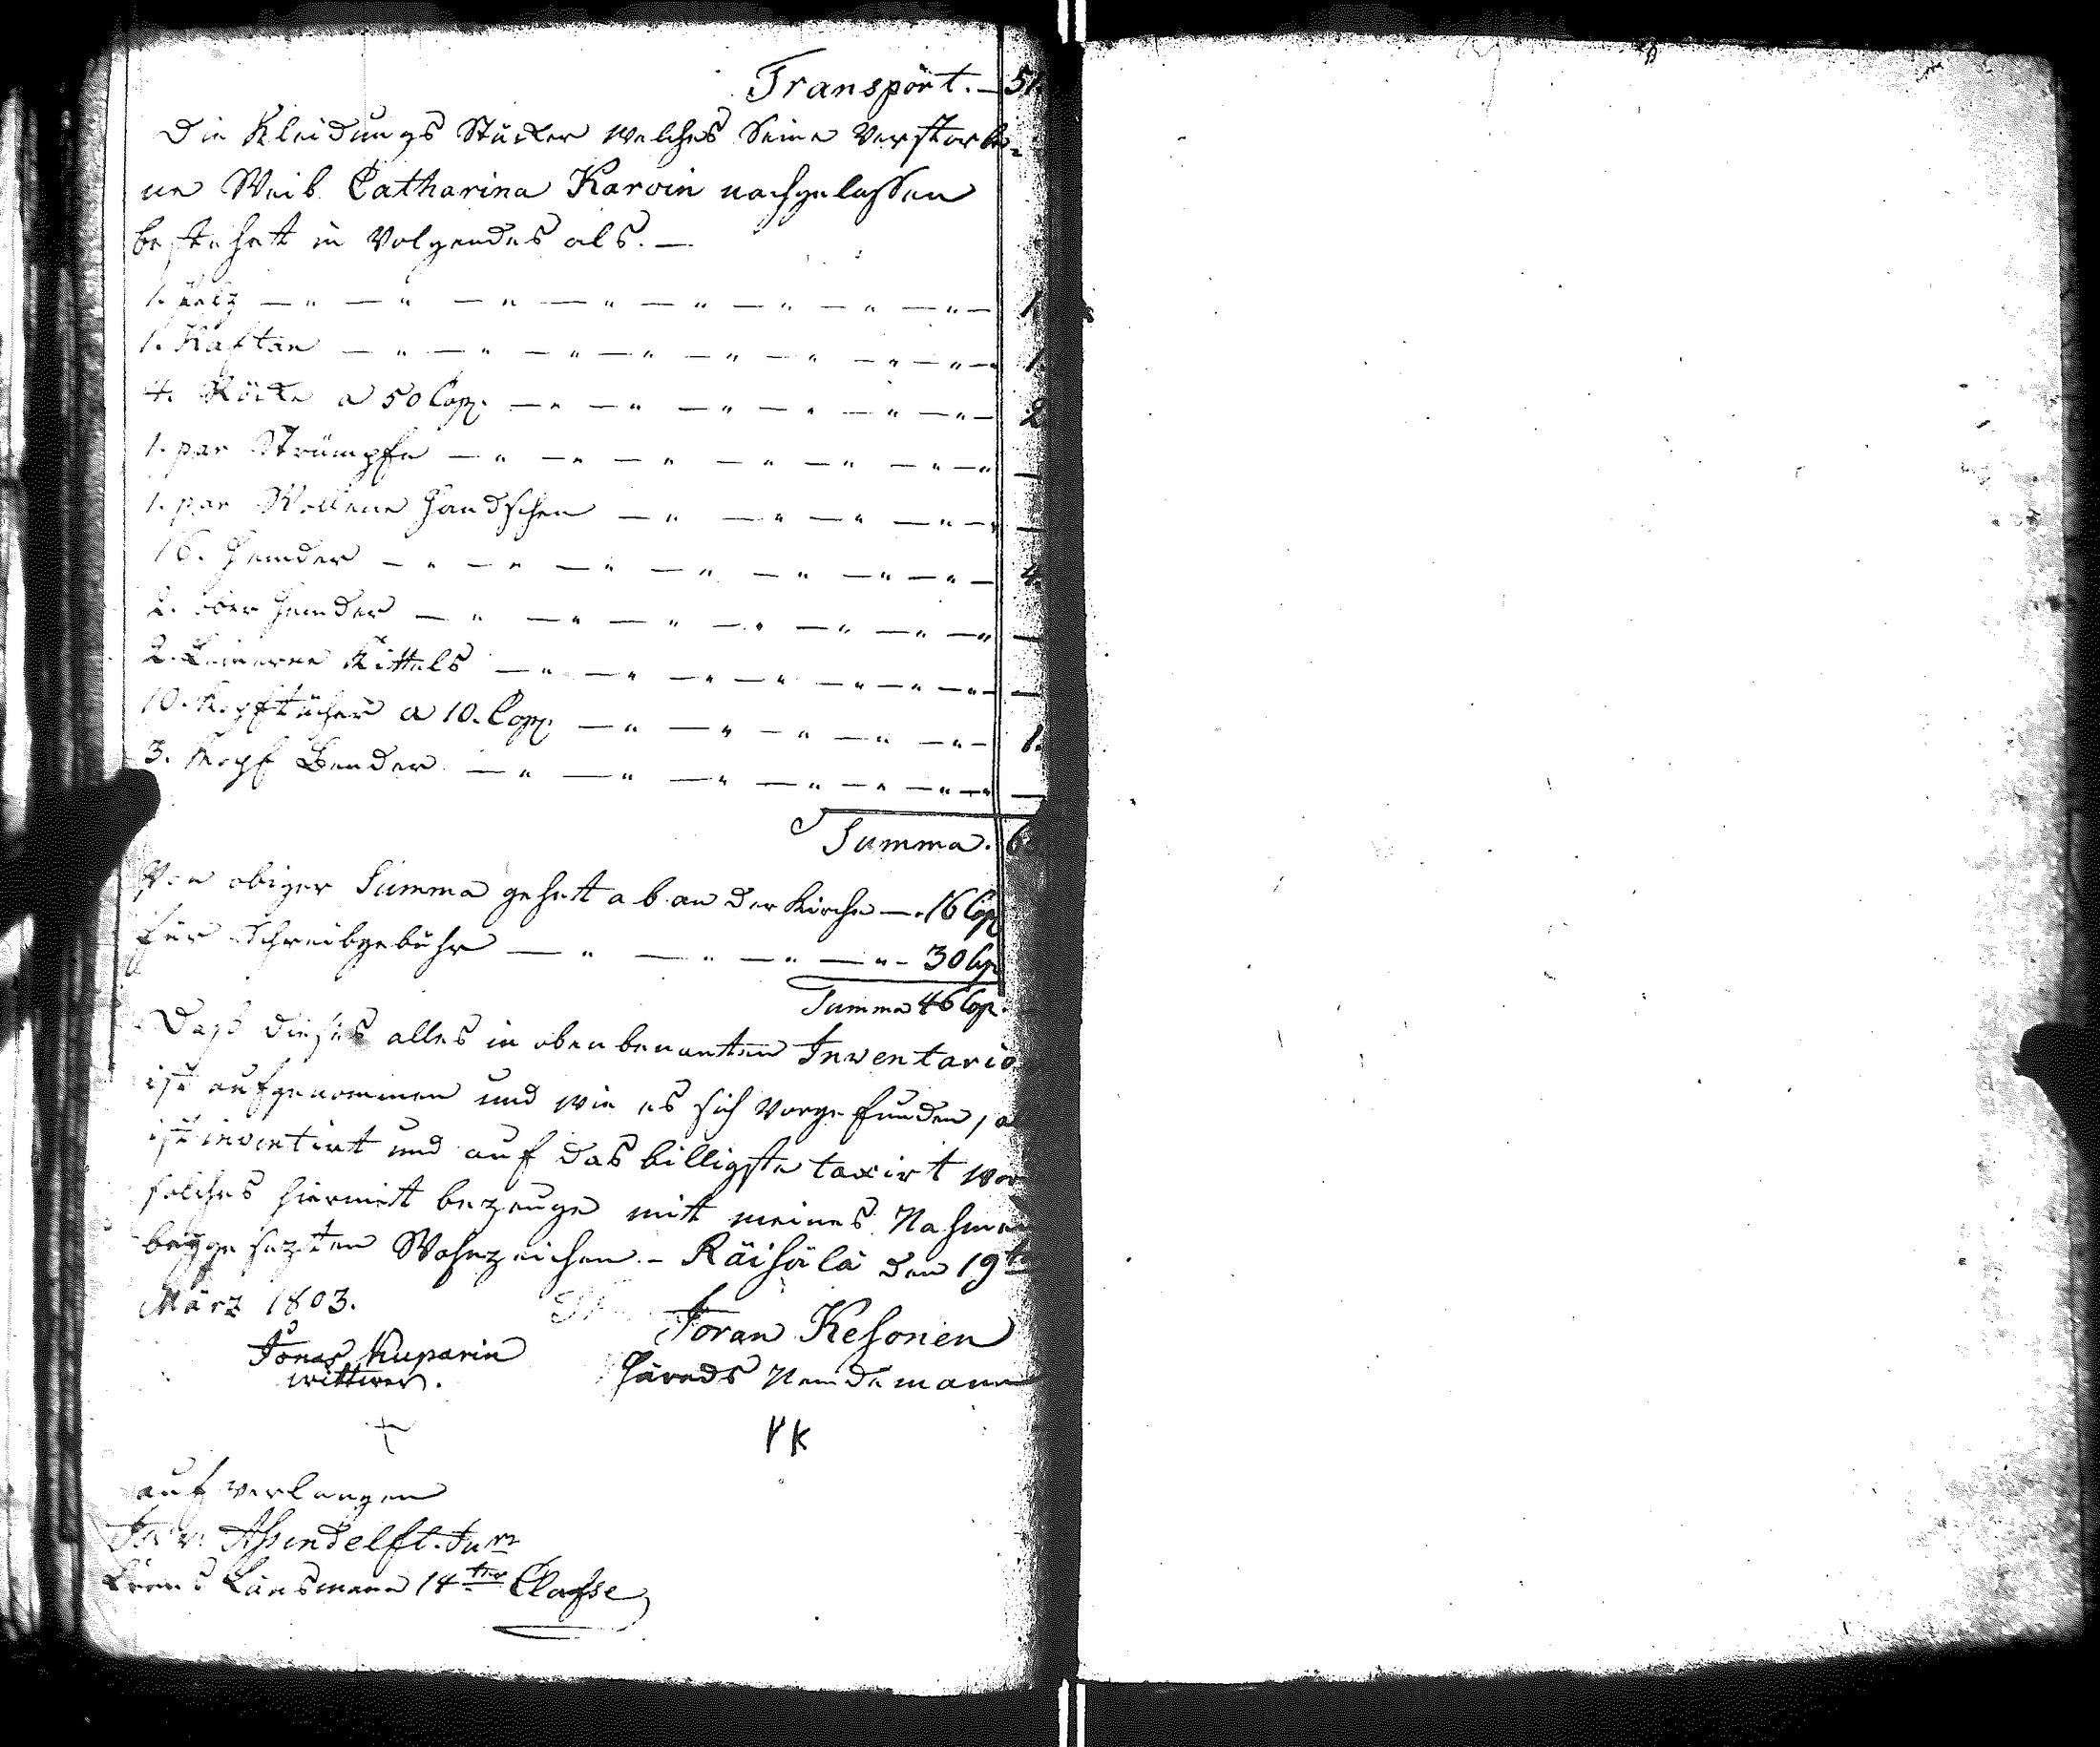 Transport. — 51.
Die Kleidungs Stücker welches Seine Verstorbe-
ne Weib Catharina Karvin nachgelassen
bestehett in Volgendes als. —
1. Peltz — " — " — " — " — " — " — " — " — 1.
1. Kaftan — " — " — " — " — " — " — " — " — 1.
4. Röcke a 50 Cop. — " — " — " — " — " — " — 2
1. par Strümpfe — " — " — " — " — " — " — " —
1. par Wollene Handschen — " — " — " — " — " —
16. Hemder — " — " — " — " — " — " — " — 4.
2. ober Hemder — " — " — " — " — " — " — " —
2. Leinerne Kittels — " — " — " — " — " — " — " —
10. Kopftücher a 10. Cop. — " — " — " — " — " — 1.
3. Kopf Bender — " — " — " — " — " — " — " —
Summa. 6
Von obiger Summa gehett ab an der Kirche — . 16 Cop
für Schreibgebühr — " — " — " — " — 30 Cop
Summa 46 Cop.
Daß dieses alles in obenbenanten Inventario
ist aufgenommen und wie es sich Vorgefunden,
ist inventirt und auf das billigste taxirt wor
solches hiermit bezeuge mitt meines Nahmen
beygesezten Wahrzeichen. — Räisälä den 19ten
März 1803.
Joran Kesonen
Jonas Kuparin
Härads Nemdemann
wittwer.
+
YK
auf verlangen
Assendelft. Junr
Läns Länsmann 14ter Classe